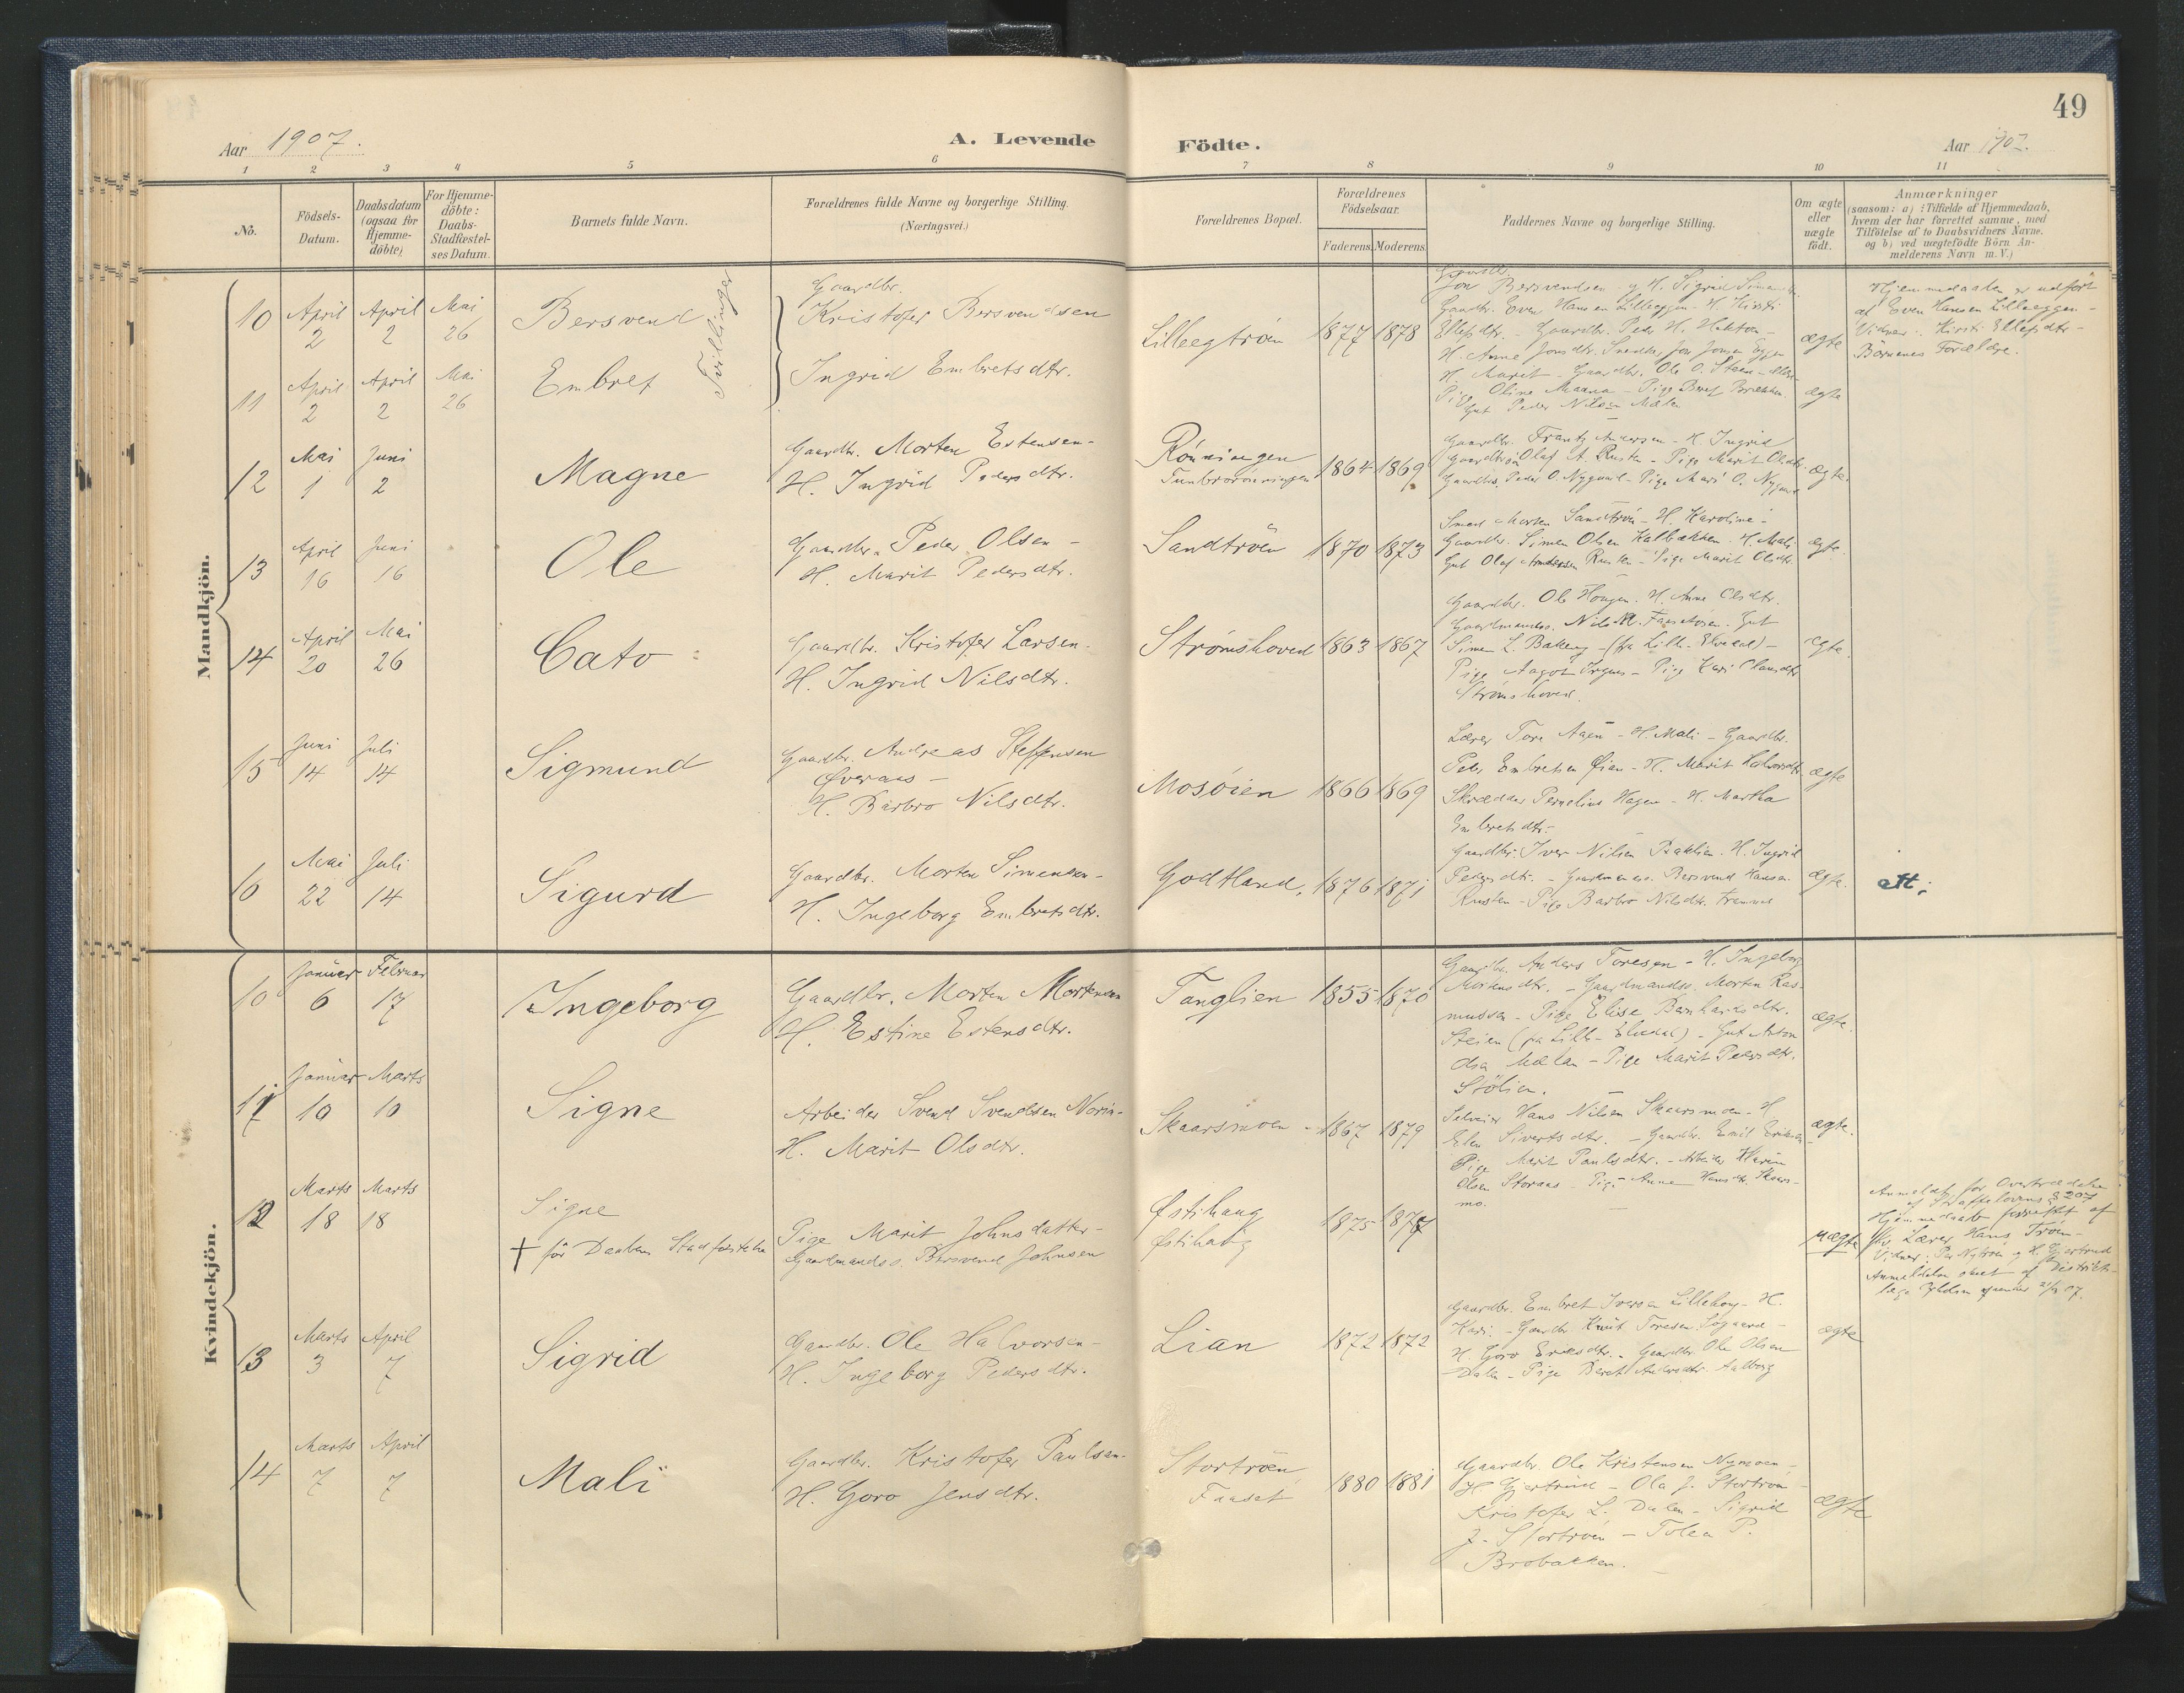 49
Aar 1907.
A. Levende Födte.
Aar 1907.
1 2 3 4 5 6 7 8 9 10 11
No.
Födsels-Datum.
Daabsdatum (ogsaa for Hjemme-döbte)
For Hjemme-döbte: Daabs-Stadfæstel-ses Datum.
Barnets fulde Navn.
Forældrenes fulde Navne og borgerlige Stilling.
(Næringsvei.)
Forældrenes Bopæl.
Forældrenes Födselsaar.
Faderens. Moderens.
Faddernes Navne og borgerlige Stilling.
Om ægte eller uægte födt.
Anmærkninger
(saasom: a) i Tilfælde af Hjemmedaab,
hvem der har forrettet samme, med
Tilföielse af to Daabsvidners Navne,
og b) ved uægtefödte Börn An-
melderens Navn m. V.)
Mandkjön.
10 April 2 April 2 Mai 26 Bersvend
Tvillinger
Gaardbr.
Kristofer Bersvendsen
Lilleegtröen 1877 1878
Jon Bersvendsen og H. Sigrid
Gaardbr. Even Hansen Lilleeggen - H. Kirsti
Ellefsdtr. - Gaardbr. Peder H.
H. Anne Jonsdtr.
H. Marit - Gaardbr. Ole O.
Pige Oline
Gut Peder Nilsen Mælen
ægte
Hjemmedaaben er udfört
af Even Hansen Lilleeggen -
Vidner: Kirsti Ellefsdtr -
Börnenes Forældre.
11 April 2 April 2 Mai 26 Embret
Ingrid Embretsdtr.
ægte
12 Mai 1 Juni 2 Magne
Gaardbr. Morten Estensen -
H. Ingrid Pedersdtr.
Rönningen
1864 1869
Gaardbr. Frantz Andersen - H. Ingrid
Olaf A. Rusten - Pige Marit Olsdtr.
Gaardbr. Peder O. Nygaard - Pige Mari O. Nygaard
ægte.
13 April 16 Juni 16 Ole
Gaardbr. Peder Olsen -
H. Marit Pedersdtr.
Sandtröen 1870 1873
Smed Morten Sandtröen - H. Karoline -
Gaardbr. Simen Olsen Kalbakken. H. Mali
Gut Olaf Andersen Rusten - Pige Marit Olsdtr.
ægte.
14 April 20 Mai 26 Cato
Gaardbr. Kristofer Larsen.
H. Ingrid Nilsdtr.
Strömshoved 1863 1867
Gaardbr. Ole Hougen. H. Anne Olsdtr.
Gaardmands. Nils M. Gut
Simen L. Bakeng - (fra Lille-Elvedal) -
Pige Aagot - Pige Kari
Strömshoved.
ægte.
15 Juni 14 Juli 14 Sigmund
Gaardbr. Andreas Steffensen
Överaas -
H. Barbro Nilsdtr.
Mosöien 1866 1869
Lærer Tore Aaen - H. Mali - Gaardbr.
Peder Embretsen Öian - H. Marit Halvorsdtr.
Skrædder Pernelius Hagen - H. Martha
Embretsdtr. -
ægte
16 Mai 22 Juli 14 Sigurd
Gaardbr. Morten Simensen -
H. Ingeborg Embretsdtr.
Godtland, 1876 1871
Gaardbr. Iver Nilsen Baklien. H. Ingrid
Pedersdtr. - Gaardmands. Bersvend Hansen
Rusten - Pige Barbro Nilsdtr.
ægte.
att:
Kvindekjön.
10 Januar 6 Februar 17 Ingeborg
Gaardbr. Morten Mortensen
H. Estine Estensdtr.
Tanglien 1855 1870
Gaardbr. Anders Toresen - H. Ingeborg
Mortensdtr. - Gaardmands. Morten Ras-
mussen - Pige Elise Bernhardsdtr.
Steien (fra Lille-Elvedal) - Gut Anton
Olsen Mælan - Pige Marit Pedersdtr.
Stölien.
ægte.
11 Januar 10 Marts 10 Signe
Arbeider Svend Svendsen Norin -
H. Marit Olsdtr.
Skaarsmoen - 1867 1879
Selveier Hans Nilsen Skaarsmoen - H
Elen Sivertsdtr. - Gaardbr. Emil Eriksen -
Pige Marit Paulsdtr. - Arbeider
Olsen Storaas - Pige Anne Hansdtr. Skaars-
mo.
ægte.
12 Marts 18 Marts 18 Signe
† för Daabens Stadfæstelse
Pige Marit Johnsdatter -
Gaardmands. Bersvend Johnsen
Östihaug
Östihaug
1875 1877
uægte
Anmeldt for Overtrædelse
af Straffelovens § 207
Hjemmedaab forrettet af
Lærer Hans Tröen -
Vidner: Per Nytröen og H. Gjertrud
Anmeldelsen
13 Marts 3 April 7 Sigrid
Gaardbr. Ole Halvorsen -
H. Ingeborg Pedersdtr.
Lian 1872 1872
Gaardbr. Embret Iversen Lillehoug - H.
Kari. - Gaardbr. Knut Toresen Sögaard -
H. Goro Eriksdtr. - Gaardbr. Ole Olsen
Dalen - Pige Beret Andersdtr. Aalborg
ægte
14 Marts 7 April 7 Mali
Gaardbr. Kristofer Paulsen.
H. Goro Jensdtr.
Stortröen,
Faaset
1880 1881
Gaardbr. Ole Kristensen Nymoen -
H Gjertrud - Ola J. Stortröen -
Kristofer L. Dalen - Sigrid
J. Stortröen - Tolea P.
Brobakken.
ægte